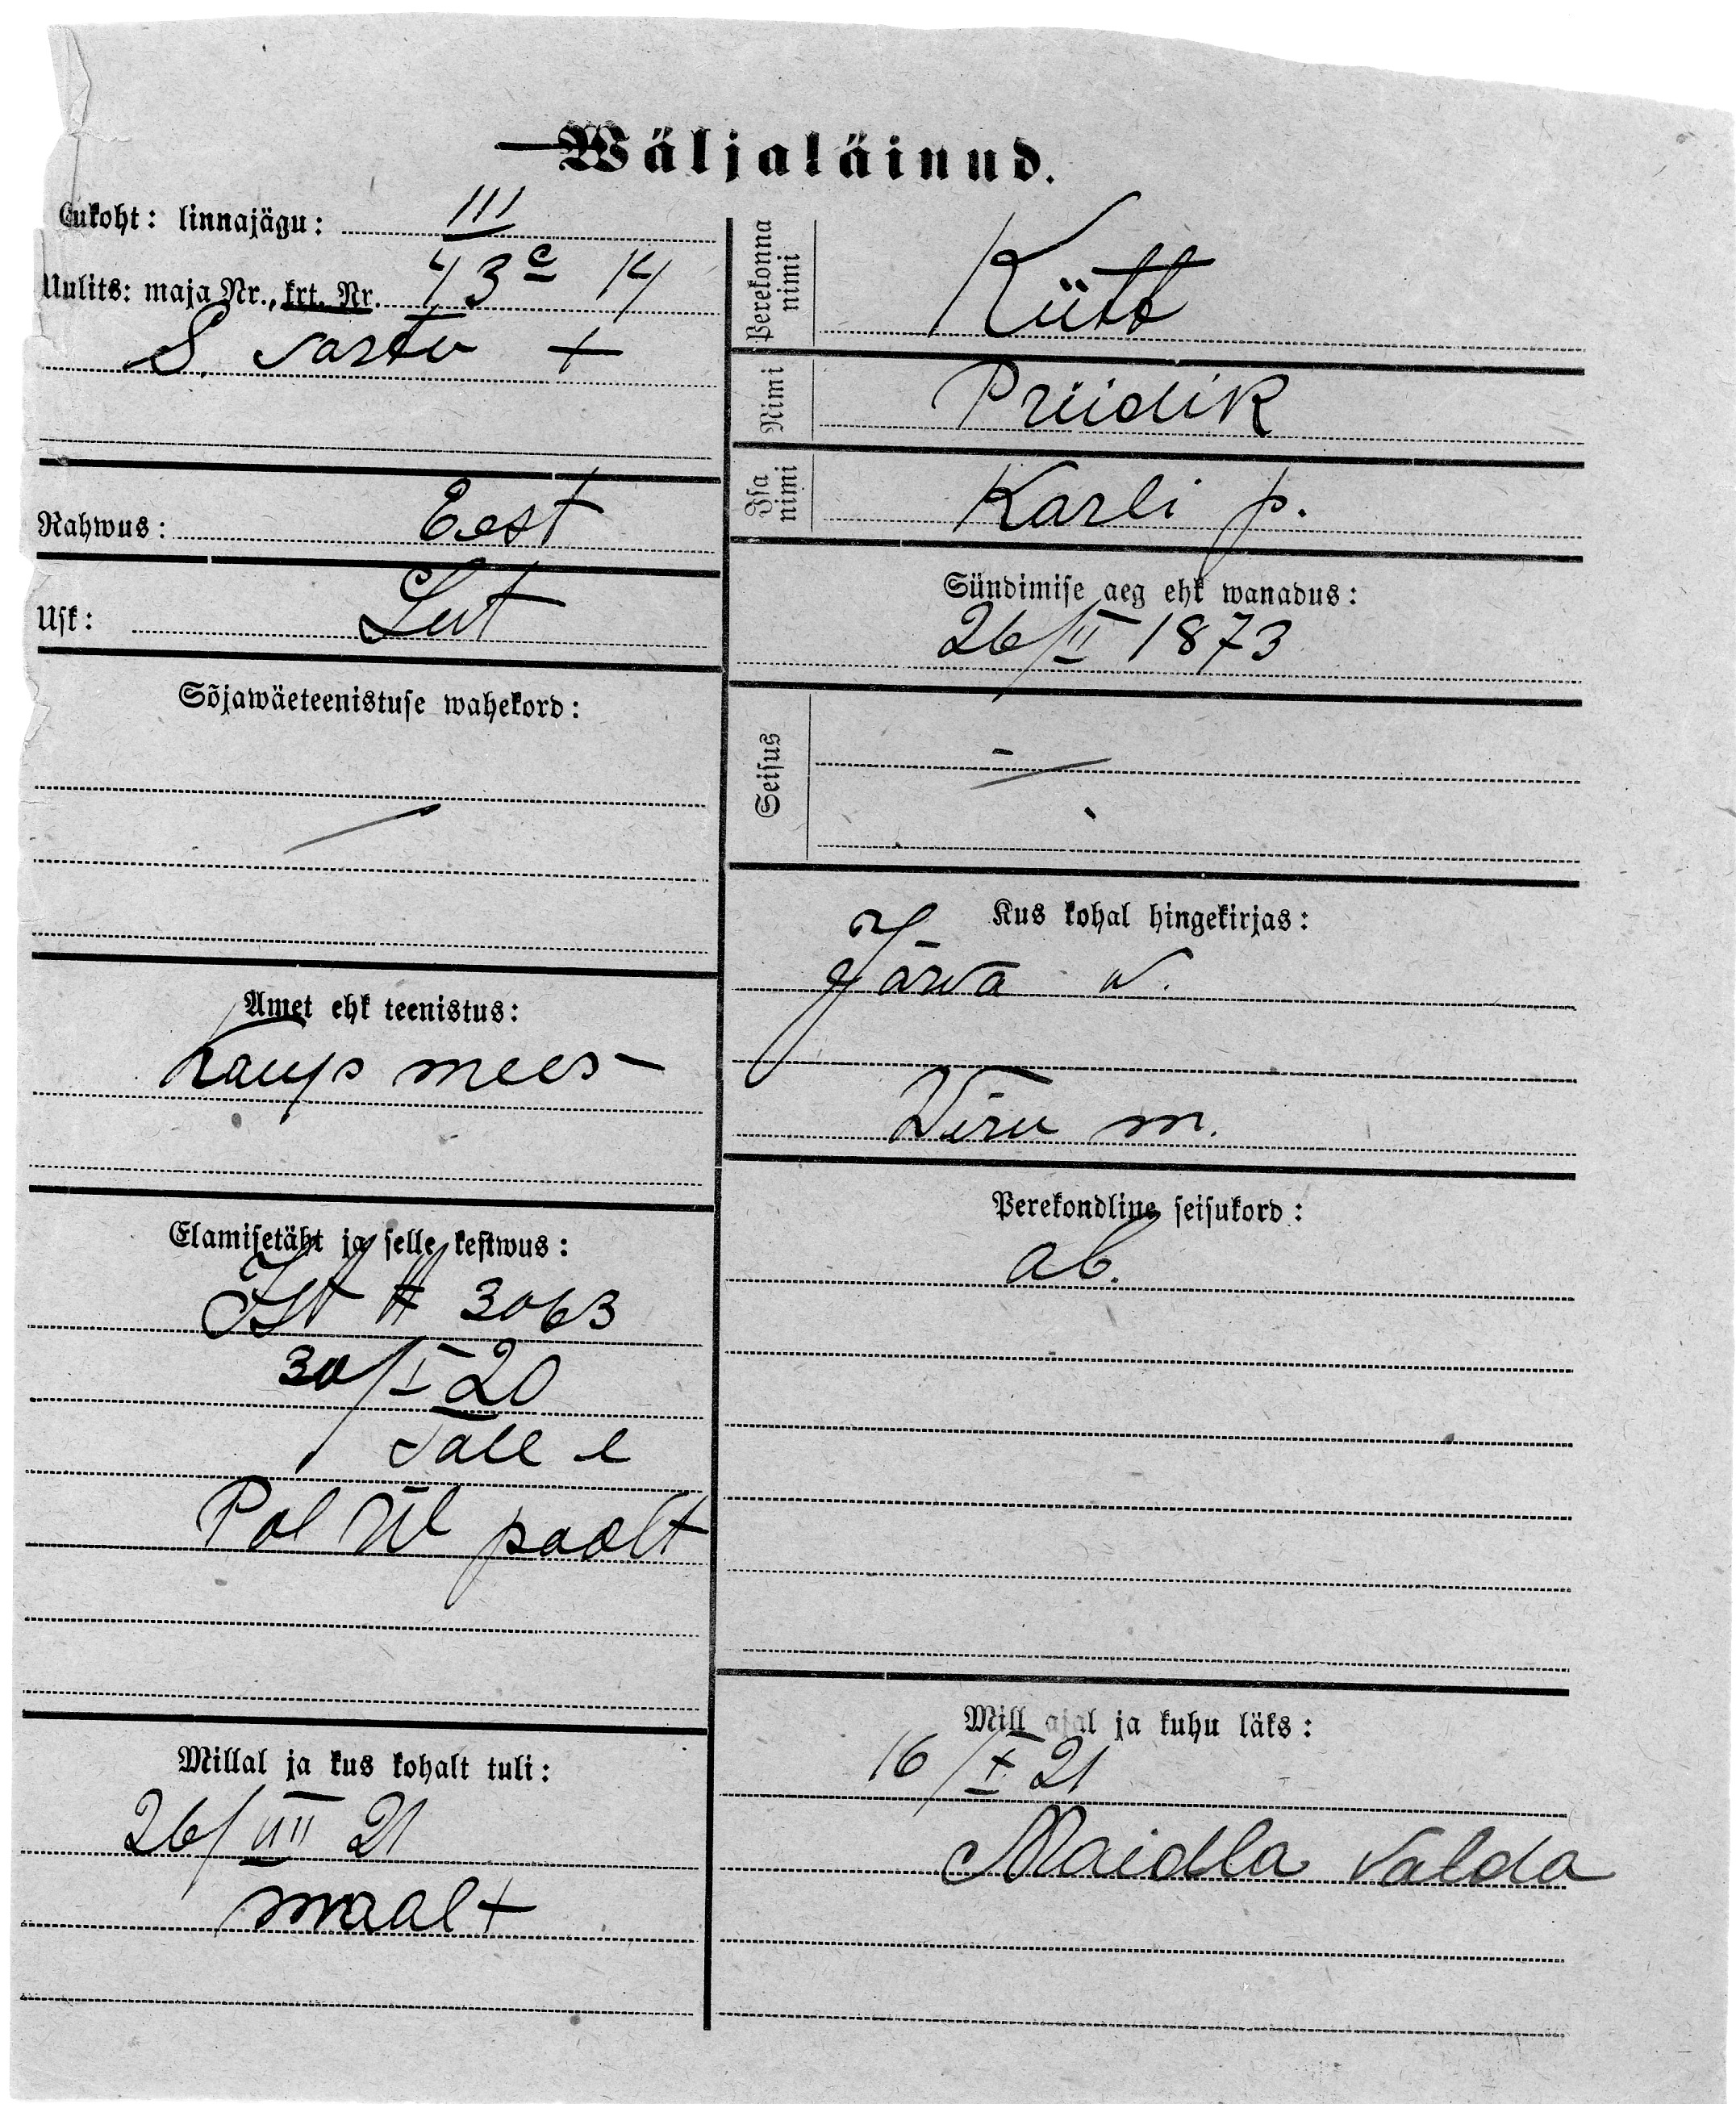 Wäljaläinud.
Elukoht: linnajägu: III
Uulits: maja Nr., krt. Nr. 43c 14
S. Tartu
Rahwus: Eest
Usk: Lut
Sõjawäeteenistuse wahekord:
Amet ehk teenistus:
Kaups mees
Elamisetäht ja selle kestwus:
3063
30/I 20
Tall l
Pol Ül paolt
Millal ja kus kohalt tuli:
26/VIII 21
maalt
Perekonna nimi
Kütt
Nimi
Priidik
Isa nimi
Karli p.
Sündimise aeg ehk wanadus:
26/II 1873
Seisus
Kus kohal hingekirjas:
Järwa w.
Wiru m.
Perekondline seisukord:
ab.
Mill ajal ja kuhu läks:
16/X 21
Maidla valda